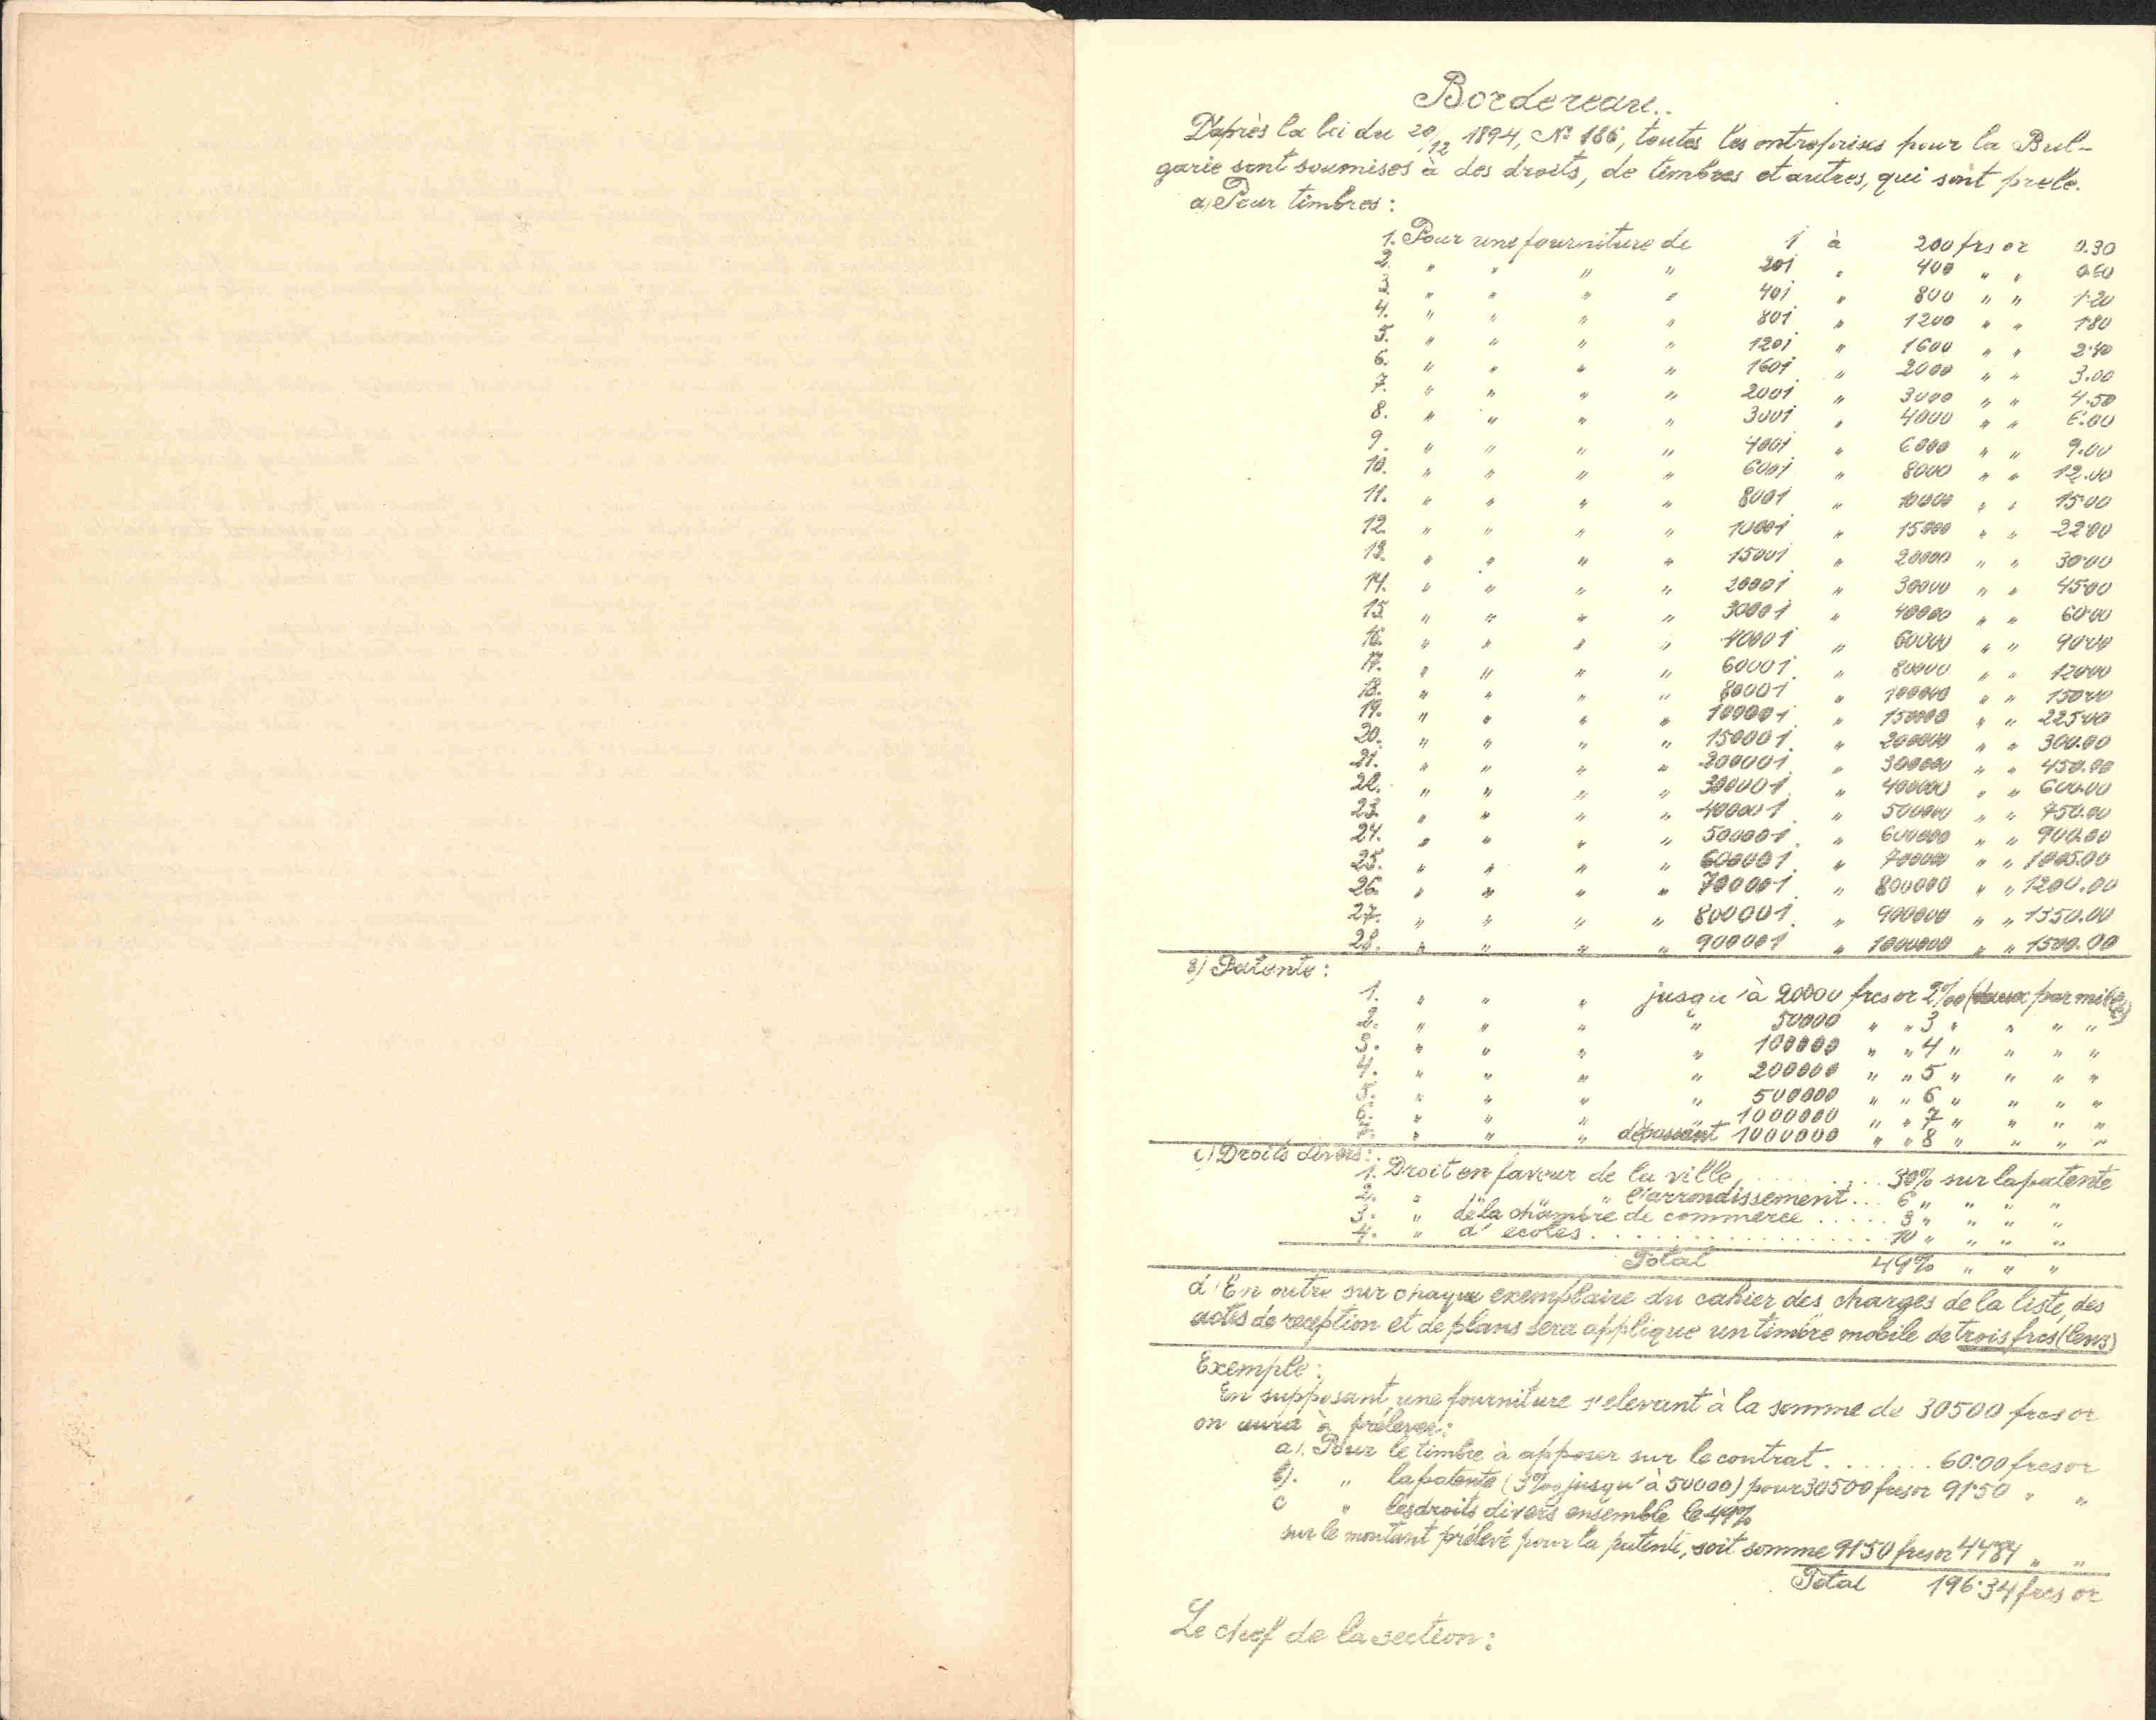 Bordereau..
D'après la loi du 20/12 1894, № 186, toutes les entreprises pour la Bul-
garie sont soumises à des droits, de timbres et autres, qui sont prele.
a) Pour timbres :
1. Pour une fourniture de 1 à 200 frs or 0.30
2. " " " " 201 " 400 " " 0.60
3. " " " " 401 " 800 " " 1.20
4. " " " " 801 " 1200 " " 1.80
5. " " " " 1201 " 1600 " " 2.40
6. " " " " 1601 " 2000 " " 3.00
7. " " " " 2001 " 3000 " " 4.50
8. " " " " 3001 " 4000 " " 6.00
9. " " " " 4001 " 6000 " " 9.00
10. " " " " 6001 " 8000 " " 12.00
11. " " " " 8001 " 10000 " " 15.00
12. " " " " 10001 " 15000 " " 22.00
13. " " " " 15001 " 20000 " " 30.00
14. " " " " 20001 " 30000 " " 45.00
15. " " " " 30001 " 40000 " " 60.00
16. " " " " 40001 " 60000 " " 90.00
17. " " " " 60001 " 80000 " " 120.00
18. " " " " 80001 " 100000 " " 150.00
19. " " " " 100001 " 150000 " " 225.00
20. " " " " 150001 " 200000 " " 300.00
21. " " " " 200001 " 300000 " " 450.00
22. " " " " 300001 " 400000 " " 600.00
23. " " " " 400001 " 500000 " " 750.00
24. " " " " 500001 " 600000 " " 900.00
25. " " " " 600001 " 700000 " " 1005.00
26. " " " " 700001 " 800000 " " 1200.00
27. " " " " 800001 " 900000 " " 1350.00
28. " " " " 900001 " 1000000 " " 1500.00
b) Patente :
1. " " " jusqu'à 20000 frcs or 2‰ (deux par mille)
2. " " " " 50000 " " 3 " " " "
3. " " " " 100000 " " 4 " " " "
4. " " " " 200000 " " 5 " " " "
5. " " " " 500000 " " 6 " " " "
6. " " " 1000000 " " 7 " " " "
7. " " " dépassant 1000000 " " 8 " " " "
c) Droits divers :
1. Droit en faveur de la ville, ....... 30% sur la patente
2. " " " l'arrondissement... 6 " " " "
3. " de la chambre de commerce ..... 3 " " " "
4. " d' écoles .................. 10 " " " "
Total 49% " " "
d) En outre sur chaque exemplaire du cahier des charges de la liste, des
actes de reception et de plans sera applique un timbre mobile de trois frcs (lews)
Exemple :
En supposant une fourniture s'elevant à la somme de 30500 frcs or
on aura à prélever :
a). Pour le timbre à apposer sur le contrat ....... 60.00 frcs or
b). " la patente (3‰ jusqu'à 50000) pour 30500 frcs or 91.50 " "
c " les droits divers ensemble le 49%
sur le montant prélevé pour la patente, soit somme 91.50 frcs or 44.84 " "
Total 196.34 frcs or
Le chef de la section :